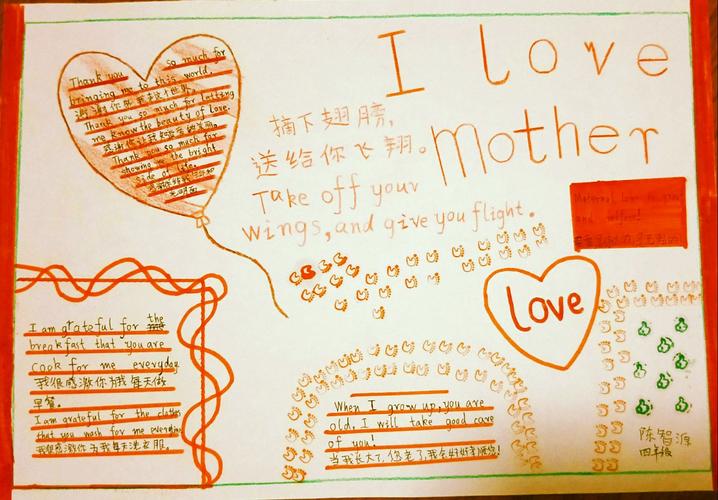 I love
Mother
Thank you so much for
bringing me to this world.
谢谢你带我来这个世界
Thank you so much for letting
me know the beauty of love.
Thank you so much for
showing me the bright
side of life.
光明面
摘下翅膀,
送给你飞翔。
Take off your
wings, and give you flight.
Maternal love is
and selfless!
love
I am grateful for the
breakfast that you are
cook for me everyday
我很感激你为我每天做
早餐。
I am grateful for the clothes
that you wash for me everyday
我很感激你为我每天洗衣服。
When I grow up, you are
old. I will take good care
of you!
当我长大了,你老了,我会好好孝顺你!
陈智源
四年级